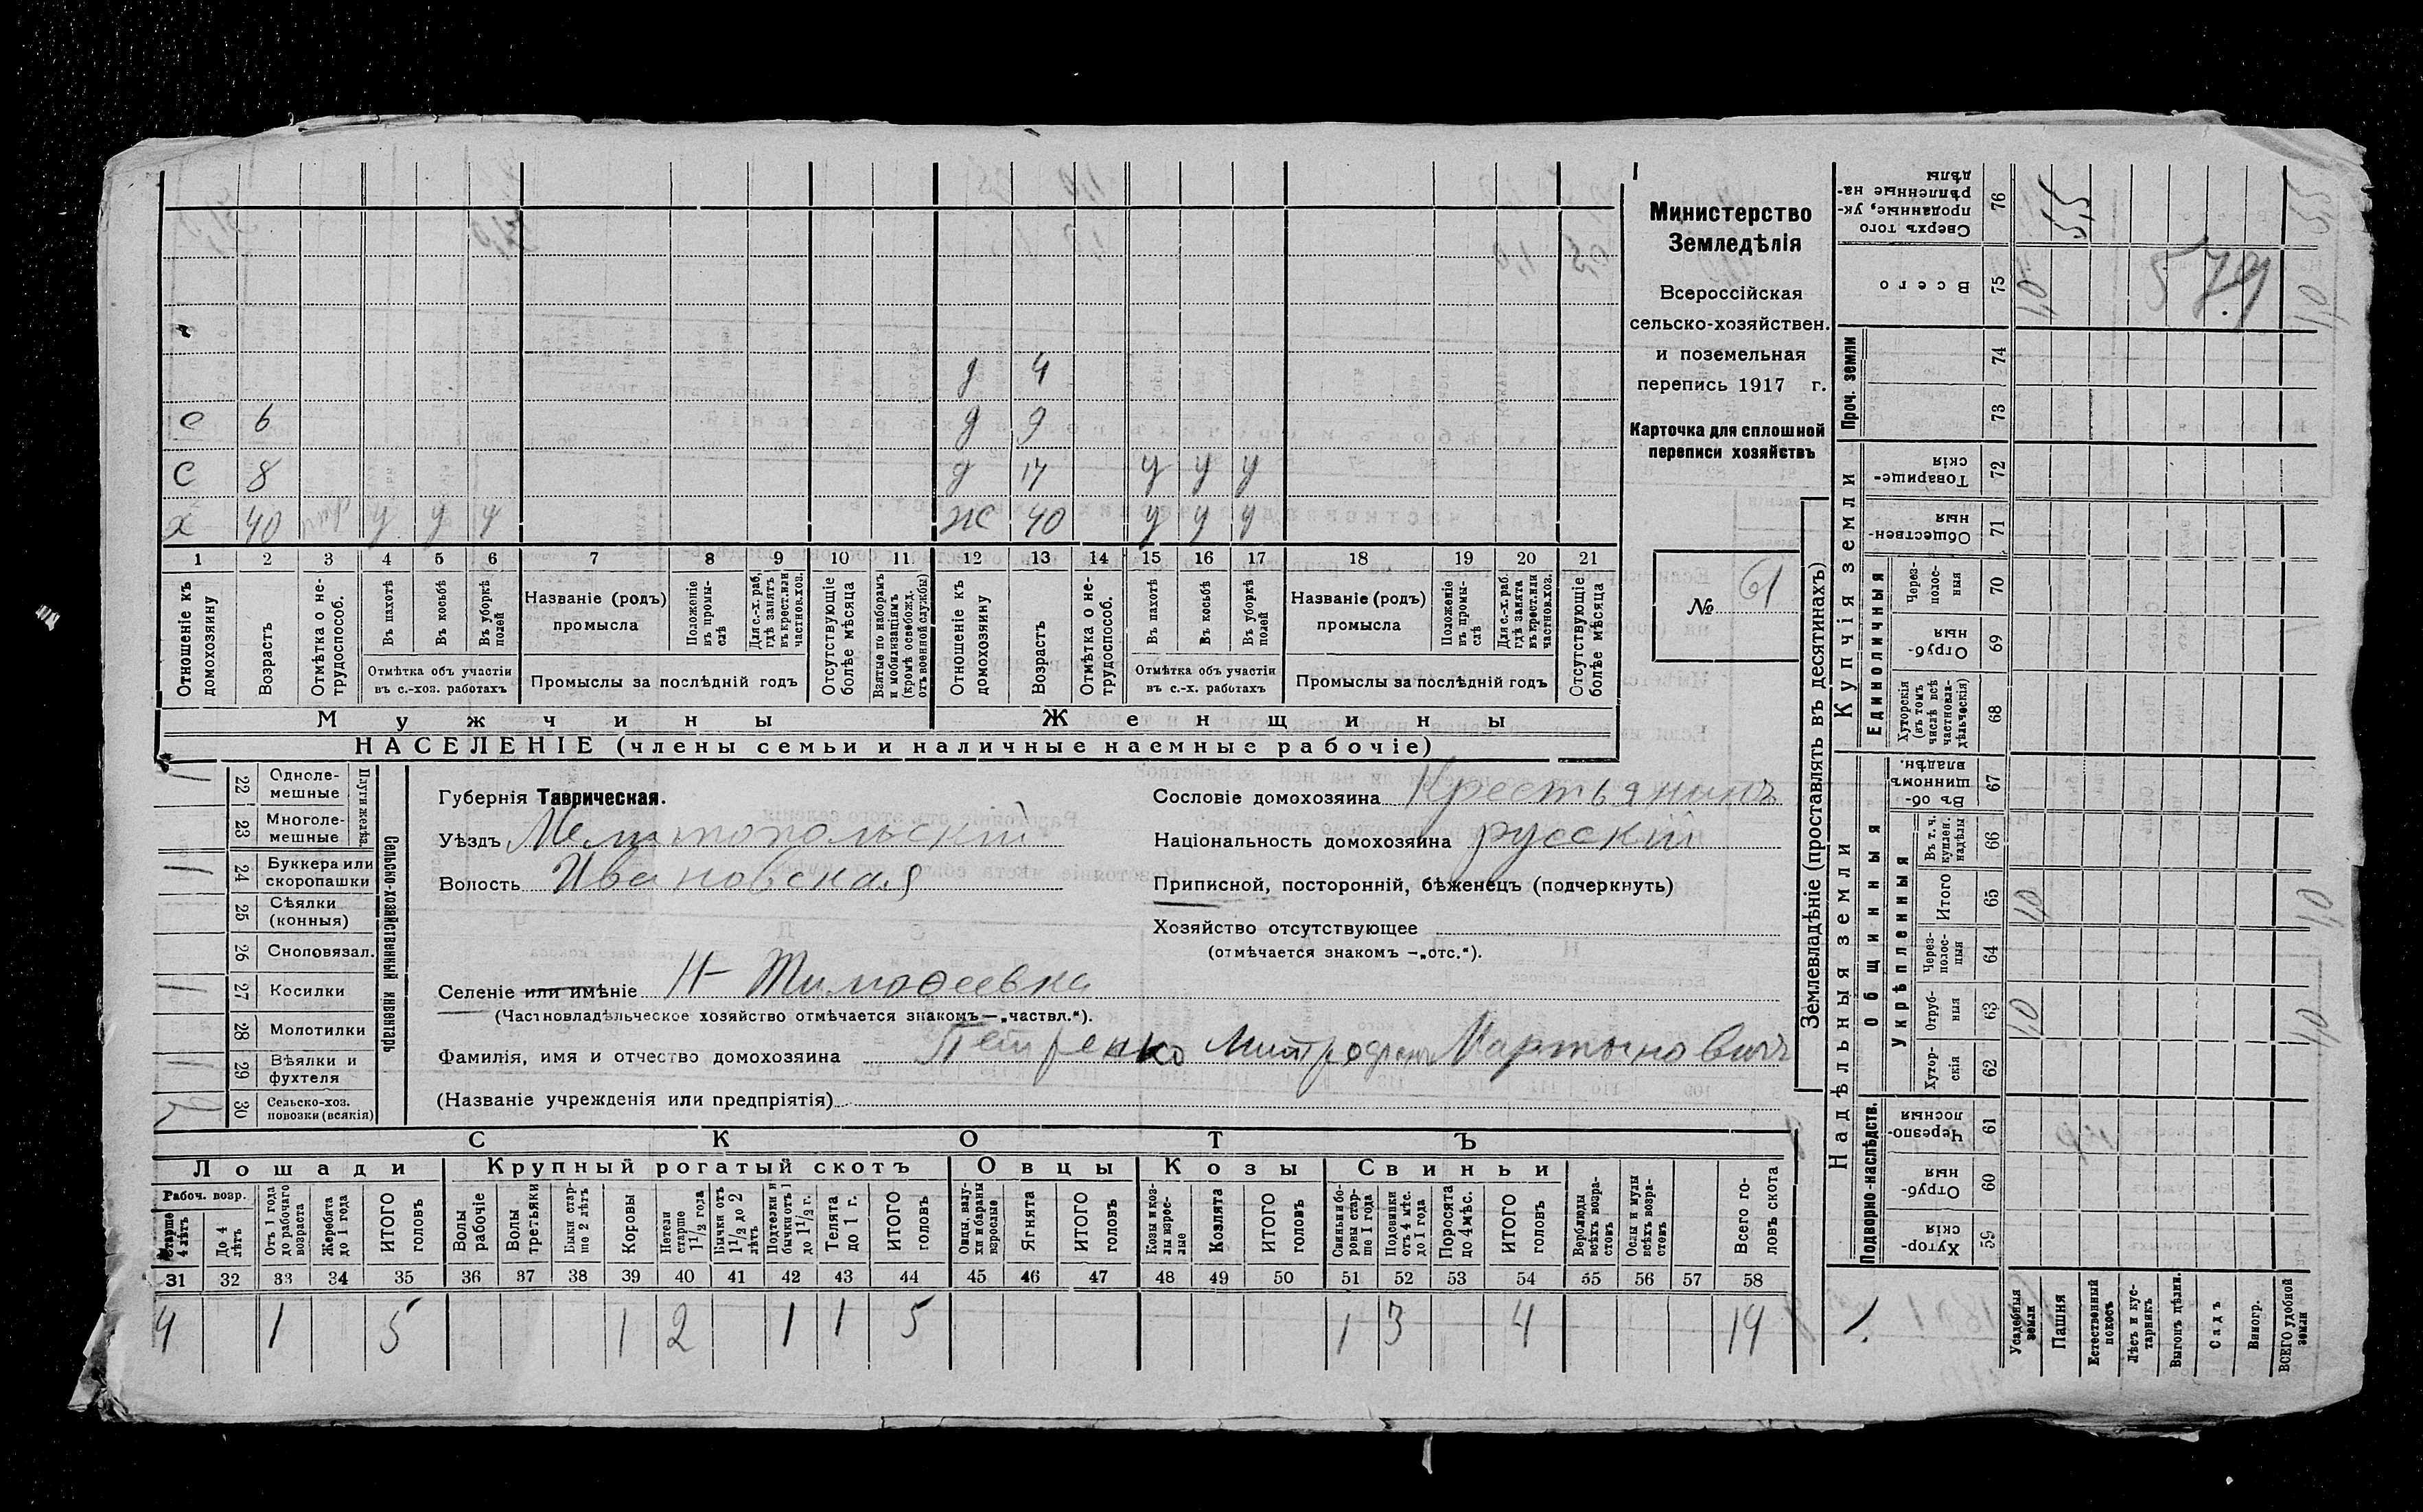 Министерство
Земледѣлія
Всероссійская
сельско-хозяйствен.
и поземельная
перепись 1917 г.
Карточка для сплошной
переписи хозяйствъ
№ 61
д 4
с 6 д 9
с 8 д 17 у у у
х 40 у у у ж 40 у у у
1 2 3 4 5 6 7 8 9 10 11 12 13 14 15 16 17 18 19 20 21
Отношеніе къ домохозяину
Возрастъ
Отмѣтка о не-трудоспособ.
Въ пахотѣ
Въ косьбѣ
Въ уборкѣ полей
Отмѣтка объ участіи
въ с.-хоз. работахъ
Названіе (родъ)
промысла
Положеніе въ промы-слѣ
Для с.-х. раб, гдѣ занятъ въ крест. или частнов. хоз.
Промыслы за послѣдній годъ
Отсутствующіе болѣе мѣсяца
Взятые по наборамъ и мобилизаціямъ (кромѣ освобожд. отъ военной службы)
Отношеніе къ домохозяину
Возрастъ
Отмѣтка о не-трудоспособ.
Въ пахотѣ
Въ косьбѣ
Въ уборкѣ полей
Отмѣтка объ участіи
въ с.-х. работахъ
Названіе (родъ)
промысла
Положеніе въ промы-слѣ
Для с.-х. раб. гдѣ занята въ крест. или частнов. хоз.
Промыслы за послѣдній годъ
Отсутствующіе болѣе мѣсяца
Мужчины Женщины
НАСЕЛЕНІЕ (члены семьи и наличные наемные рабочіе)
Сельско-хозяйственный инвентарь
Плуги желѣз.
1 22 Одноле-мешные
23 Многоле-мешные
1 24 Буккера или скоропашки
25 Сѣялки (конныя)
26 Сноповязал.
1 27 Косилки
28 Молотилки
1 29 Вѣялки и фухтеля
2 30 Сельско-хоз. повозки (всякія)
Губернія Таврическая.
Уѣздъ Мелитопольскій
Волость Ивановская
Сословіе домохозяина Крестьянинъ
Національность домохозяина русскій
Приписной, посторонній, бѣженецъ (подчеркнуть)
Хозяйство отсутствующее
(отмѣчается знакомъ —„отс.“).
Селеніе или имѣніе Н-Тимоѳеевка
(Частновладѣльческое хозяйство отмѣчается знакомъ—„частвл.“).
Фамилія, имя и отчество домохозяина Петренко Митрофанъ Мартыновичъ
(Названіе учрежденія или предпріятія)
СКОТЪ
Лошади Крупный рогатый скотъ Овцы Козы Свиньи
Рабоч. возр.
Старше 4 лѣтъ
До 4 лѣтъ
Отъ 1 года до рабочаго возраста
Жеребята до 1 года
ИТОГО головъ
Волы рабочіе
Волы третьяки
Быки стар-ше 2 лѣтъ
Коровы
Нетели старше 1 1/2 года
Бычки отъ 1 1/2 до 2 лѣтъ
Подтелки и бычки отъ 1 до 1 1/2 г.
Телята до 1 г.
ИТОГО головъ
Овцы, валу-хи и бараны взрослые
Ягнята
ИТОГО головъ
Козы и коз-лы взрос-лые
Козлята
ИТОГО головъ
Свиньи и бо-ровы стар-ше 1 года
Подсвинки отъ 4 мѣс. до 1 года
Поросята до 4 мѣс.
ИТОГО головъ
Верблюды всѣхъ возра-стовъ
Ослы и мулы всѣхъ возра-стовъ
Всего го-ловъ скота
31 32 33 34 35 36 37 38 39 40 41 42 43 44 45 46 47 48 49 50 51 52 53 54 55 56 57 58
4 1 5 1 2 1 1 5 1 3 4 14
Землевладѣніе (проставлять въ десятинахъ)
Надѣльныя земли Купчія земли Проч. земли
Подворно-наслѣдств. Общинныя Единоличныя
Укрѣпленныя
Сверхъ того проданные, ук-рѣпленные на-дѣлы 76 55
Всего 75
579
74
73
Товарище-скія 72
Обществен-ныя 71
Через-полос-ныя 70
Отруб-ныя 69
Хуторскія (въ томъ числѣ всѣ частновла-дѣльческія) 68
Въ об-щинномъ владѣн. 67
Въ т. ч. куплен. надѣлы 66
Итого 65
Через-полос-ныя 64
Отруб-ныя 63
Хутор-скія 62
Черезпо-лосныя 61
Отруб-ныя 60
Хутор-скія 59
Усадебныя земли
Пашня
Естественный покосъ
Лѣсъ и кус-тарникъ
Выгонъ цѣлин.
Садъ
Виногр.
ВСЕГО удобной земли